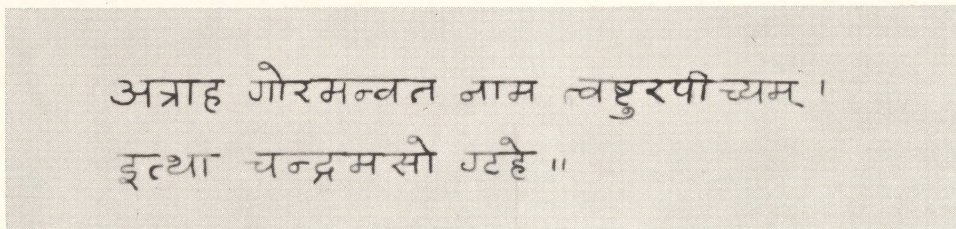 अत्राह गोरमन्वत नाम त्वष्टुरपीच्यम् ।
इत्था चन्द्रमसो गृहे ॥